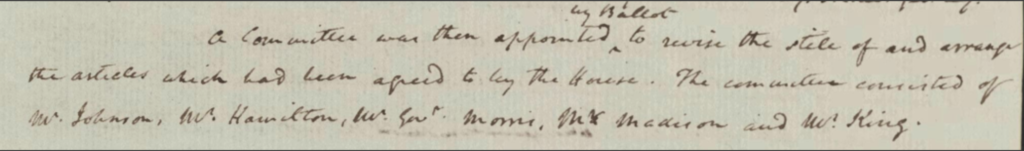 by Ballot
A Committee was then appointed ^ to revise the stile of and arrange
the articles which had been agreed to by the House. The committee consisted of
Mr. Johnson, Mr. Hamilton, Mr. Govr. Morris, Mr. Madison and Mr. King.